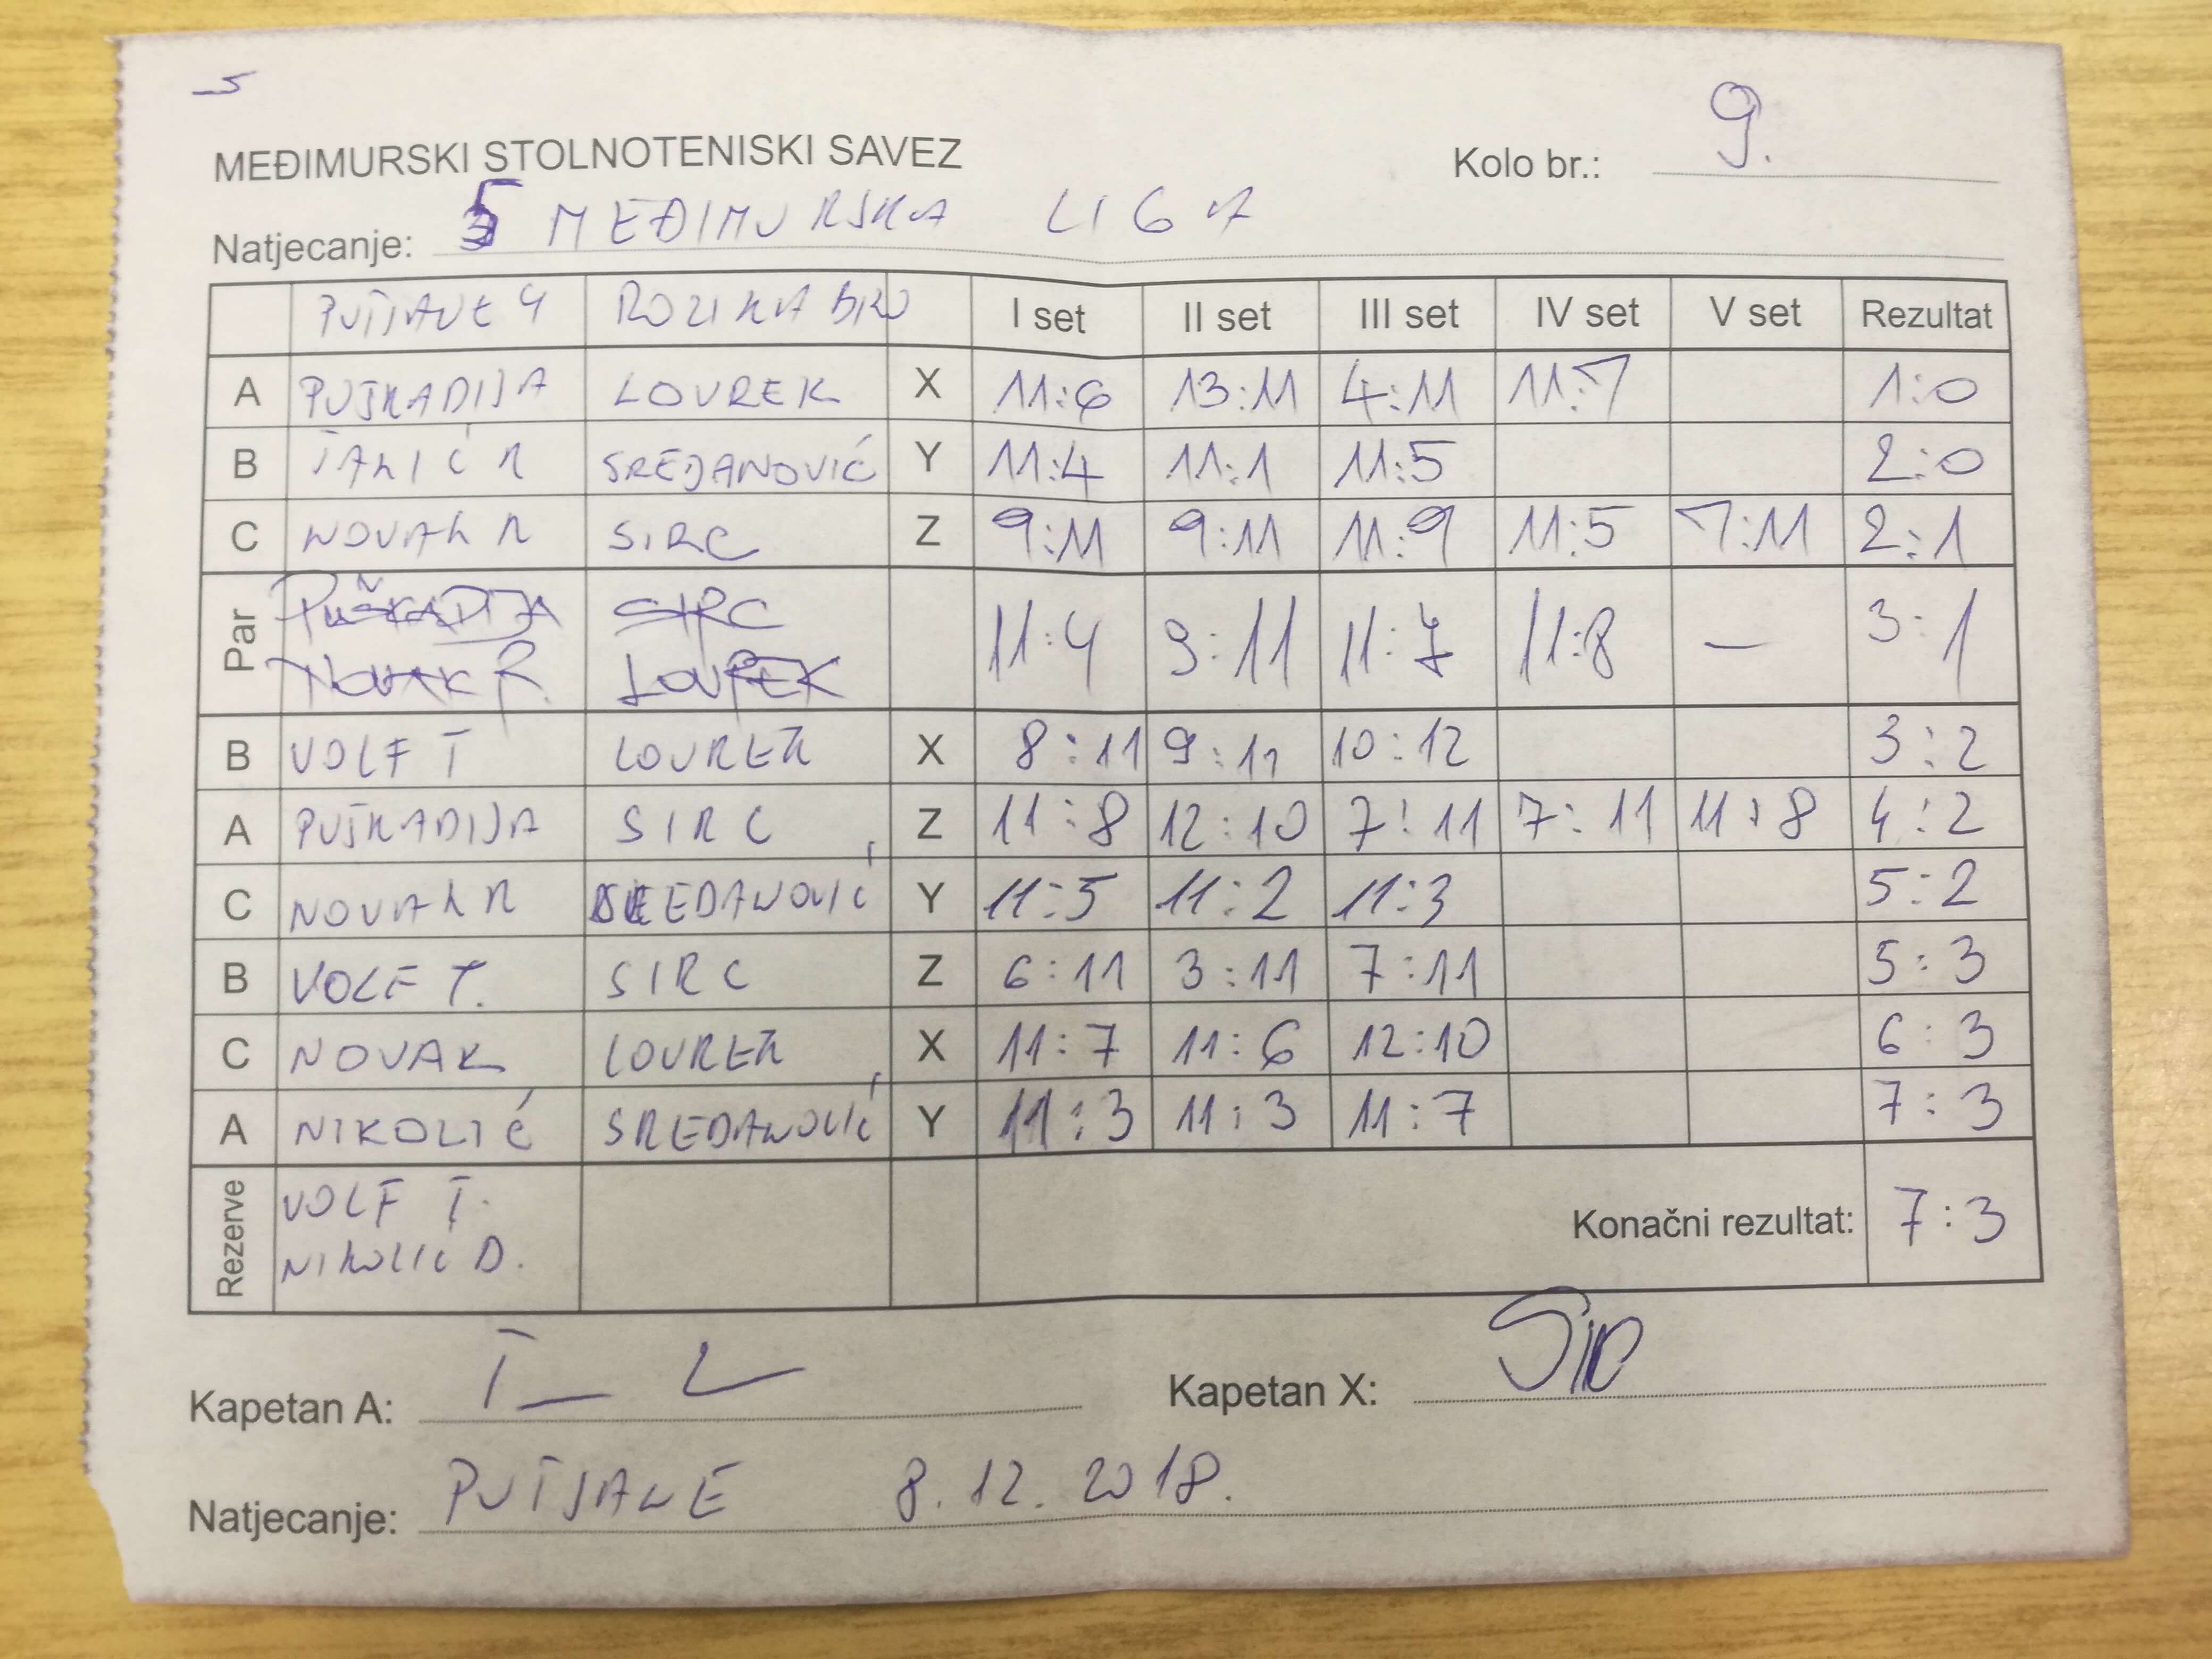 5
MEĐIMURSKI STOLNOTENISKI SAVEZ
Kolo br.: 9.
Natjecanje: 5 MEĐIMURSKA LIGA
I set II set III set IV set V set Rezultat
A PUŠKADIJA LOVREK X 11:6 13:11 4:11 11:7 1:0
B R SREDANOVIĆ Y 11:4 11:1 11:5 2:0
C NOVAK R SIRC Z 9:11 9:11 11:9 11:5 7:11 2:1
Par PUŠKADIJA SIRC 11:4 9:11 11:7 11:8 — 3:1
NOVAK R. LOVREK
B VOLF T LOVREK X 8:11 9:11 10:12 3:2
A PUŠKADIJA SIRC Z 11:8 12:10 7:11 7:11 11:8 4:2
C NOVAK R SREDANOVIĆ Y 11:5 11:2 11:3 5:2
B VOLF T. SIRC Z 6:11 3:11 7:11 5:3
C NOVAK LOVREK X 11:7 11:6 12:10 6:3
A NIKOLIĆ SREDANOVIĆ Y 11:3 11:3 11:7 7:3
Rezerve VOLF T.
NIKOLIĆ D.
Konačni rezultat: 7:3
Kapetan A:
Kapetan X:
Natjecanje: 8.12.2018.